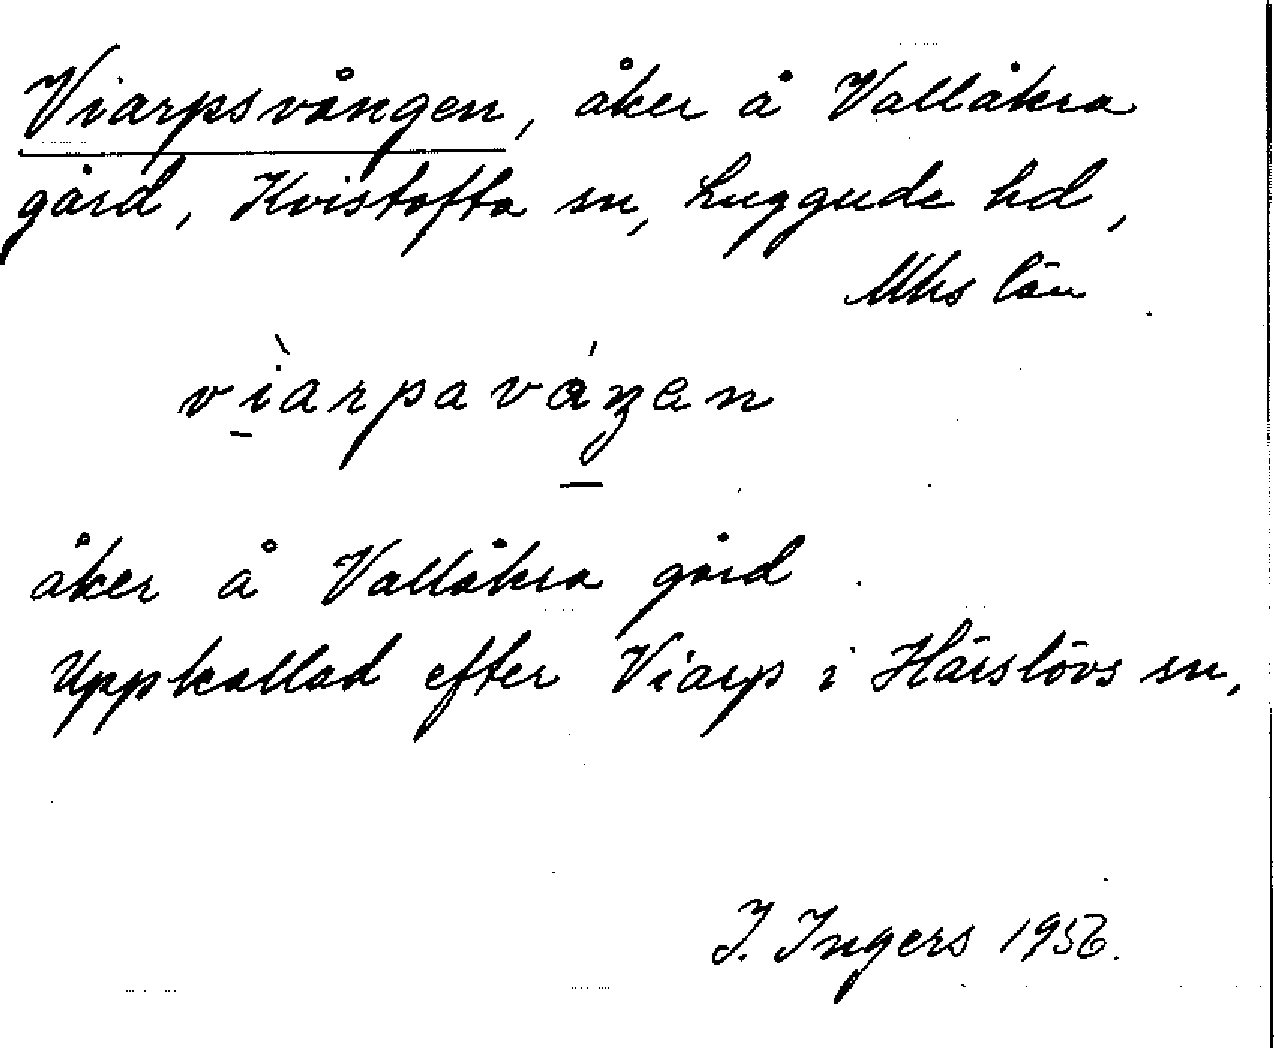 Viarpsvången, åker å Vallåkra
gård, Kvistofta sn, Luggude hd,
Mhs län
vìarpaváŋen
åker å Vallåkra gård
Uppkallad efter Viarp i Härslövs sn,
I. Ingers 1956.